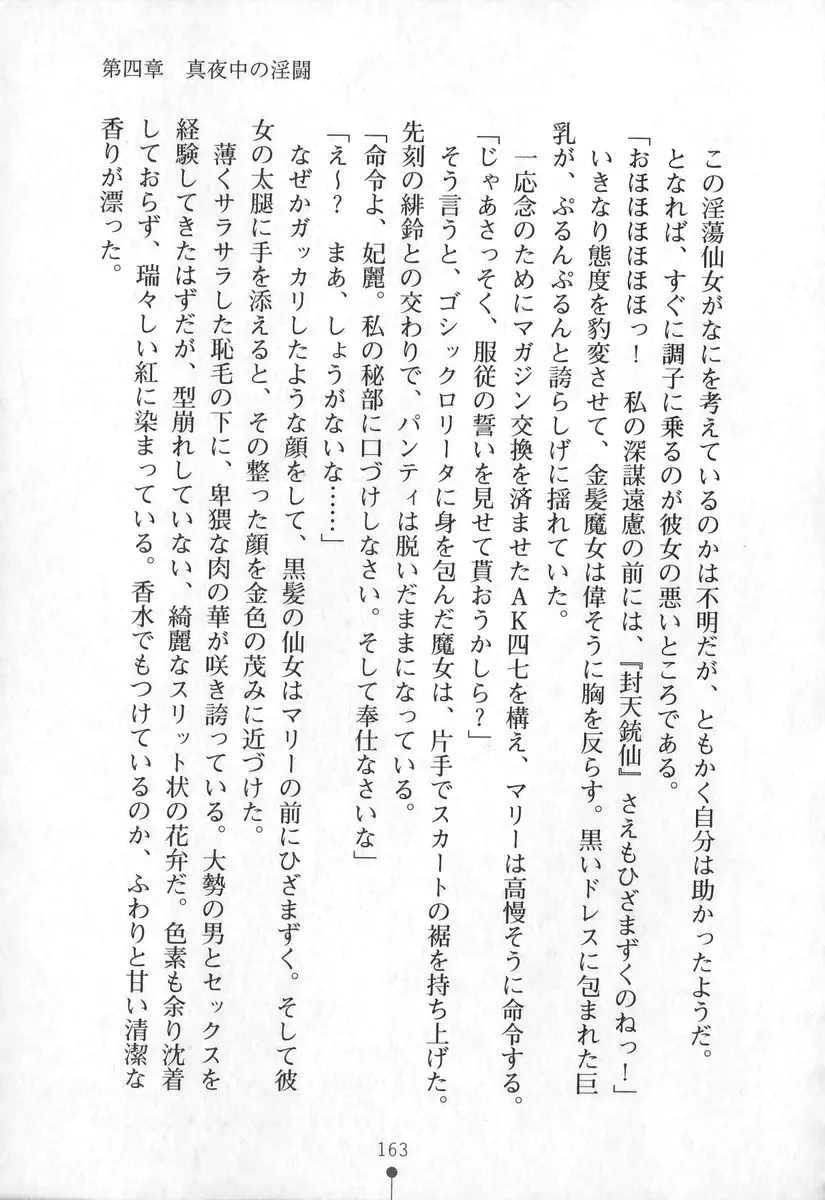 第四章　真夜中の淫闘
この淫蕩仙女がなにを考えているのかは不明だが、ともかく自分は助かったようだ。
となれば、すぐに調子に乗るのが彼女の悪いところである。
「おほほほほほほっ！　私の深謀遠慮の前には、『封天銃仙』さえもひざまずくのねっ！」
いきなり態度を豹変させて、金髪魔女は偉そうに胸を反らす。黒いドレスに包まれた巨
乳が、ぷるんぷるんと誇らしげに揺れていた。
一応念のためにマガジン交換を済ませたＡＫ四七を構え、マリーは高慢そうに命令する。
「じゃあさっそく、服従の誓いを見せて貰おうかしら？」
そう言うと、ゴシックロリータに身を包んだ魔女は、片手でスカートの裾を持ち上げた。
先刻の緋鈴との交わりで、パンティは脱いだままになっている。
「命令よ、妃麗。私の秘部に口づけしなさい。そして奉仕なさいな」
「え〜？　まあ、しょうがないな……」
なぜかガッカリしたような顔をして、黒髪の仙女はマリーの前にひざまずく。そして彼
女の太腿に手を添えると、その整った顔を金色の茂みに近づけた。
薄くサラサラした恥毛の下に、卑猥な肉の華が咲き誇っている。大勢の男とセックスを
経験してきたはずだが、型崩れしていない、綺麗なスリット状の花弁だ。色素も余り沈着
しておらず、瑞々しい紅に染まっている。香水でもつけているのか、ふわりと甘い清潔な
香りが漂った。
163